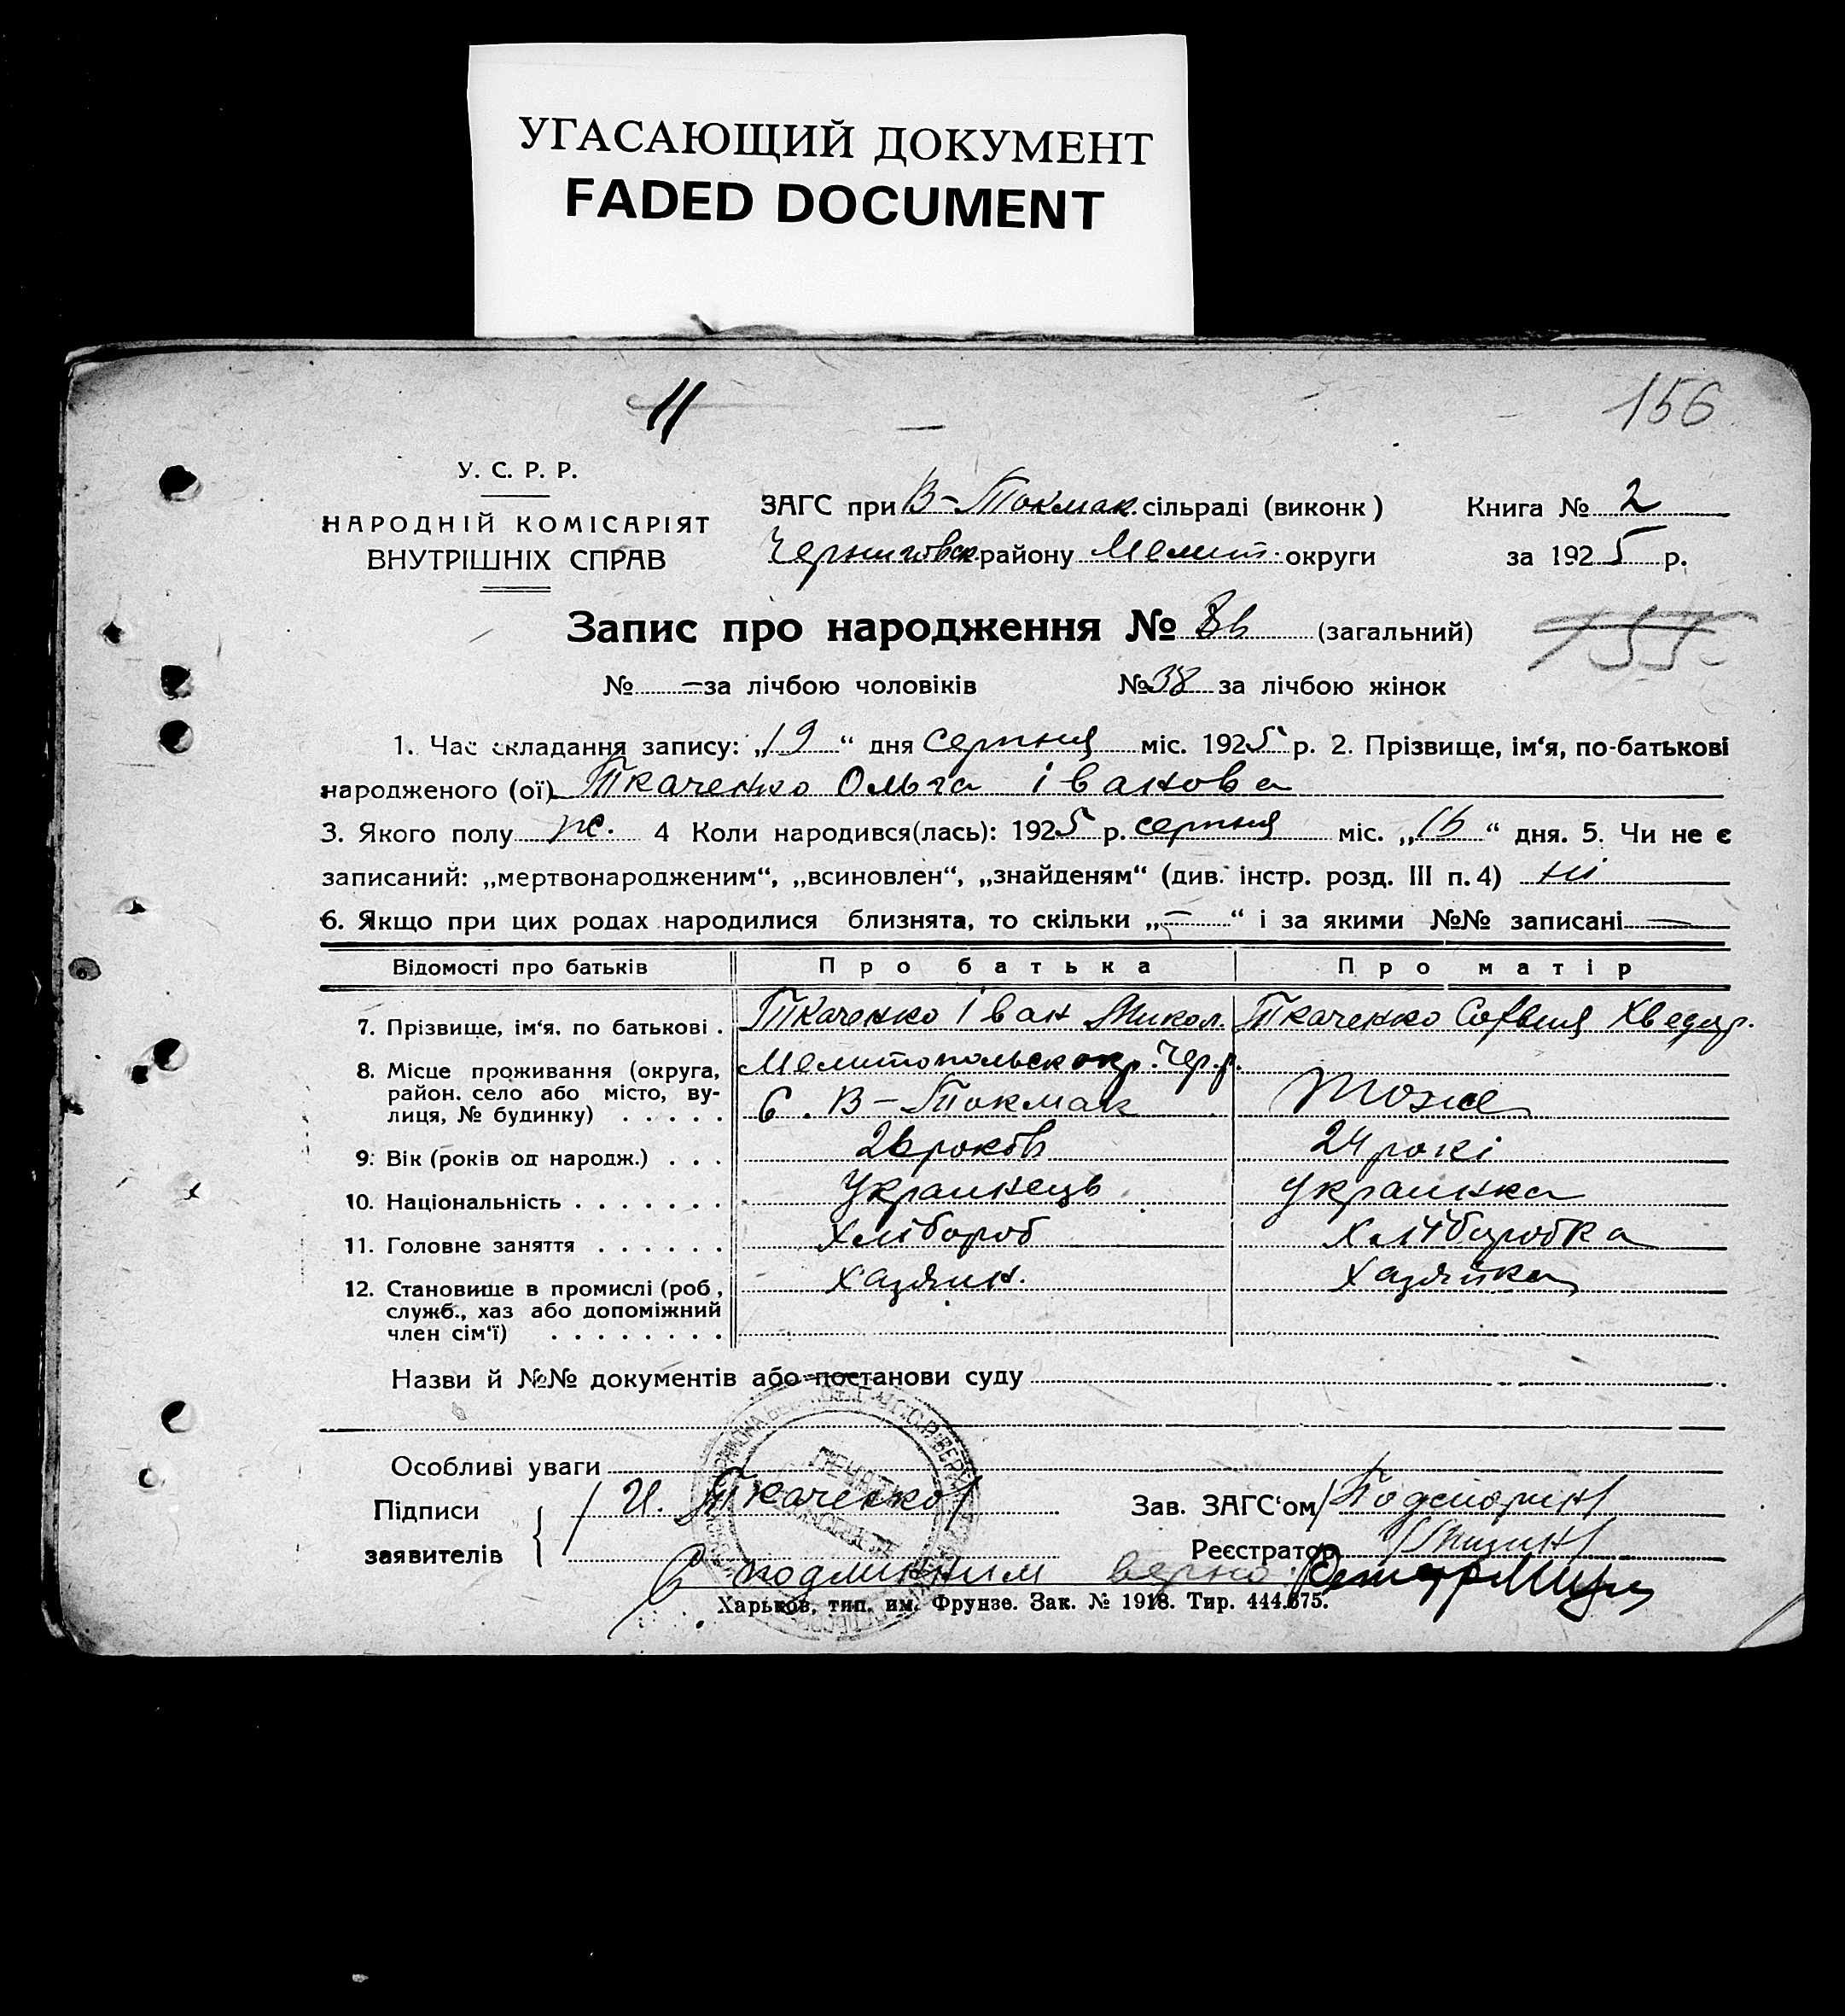 УГАСАЮЩИЙ ДОКУМЕНТ
FADED DOCUMENT
11
156
У. С. Р. Р.
НАРОДНІЙ КОМІСАРІЯТ
ВНУТРІШНІХ СПРАВ
ЗАГС при В-Токмак. сільраді (виконк)
Книга № 2
Чернигівск. району Мелит. округи
за 1925 р.
Запис про народження № 86 (загальний)
155
№ — за лічбою чоловіків
№ 38 за лічбою жінок
1. Час складання запису: „19“ дня серпня міс. 1925 р. 2. Прізвище, ім‘я, по-батькові
народженого (ої) Ткаченко Ольга Іванова
3. Якого полу ж. 4 Коли народився(лась): 1925 р. серпня міс. „16“ дня. 5. Чи не є
записаний: „мертвонародженим“, „всиновлен“, „знайденям“ (див. інстр. розд. III п. 4) ні
6. Якщо при цих родах народилися близнята, то скільки „—“ і за якими №№ записані —
Відомості про батьків
Про батька
Про матір
7. Прізвище, ім‘я, по батькові .
Ткаченко Іван Микол.
Ткаченко Софвия Хведор.
8. Місце проживання (округа,
район, село або місто, ву-
лиця, № будинку) . . . . .
Мелитопольск окр. Чер. р.
с. В-Токмак
тоже
9. Вік (років од народж.) . . .
26 років
24 рокі
10. Національність . . . . . . .
Украинець
Украинка
11. Головне заняття . . . . . .
Хлібороб
Хліборобка
12. Становище в промислі (роб,
служб., хаз або допоміжний
член сім‘ї) . . . . . . . .
хазяин.
хазяйка
Назви й №№ документів або постанови суду
Особливі уваги
Підписи
заявителів
/ И. Ткаченко /
Зав. ЗАГС‘ом
Реєстратор
С подлинним верно:
Харьков, тип. им. Фрунзе. Зак. № 1918. Тир. 444.675.